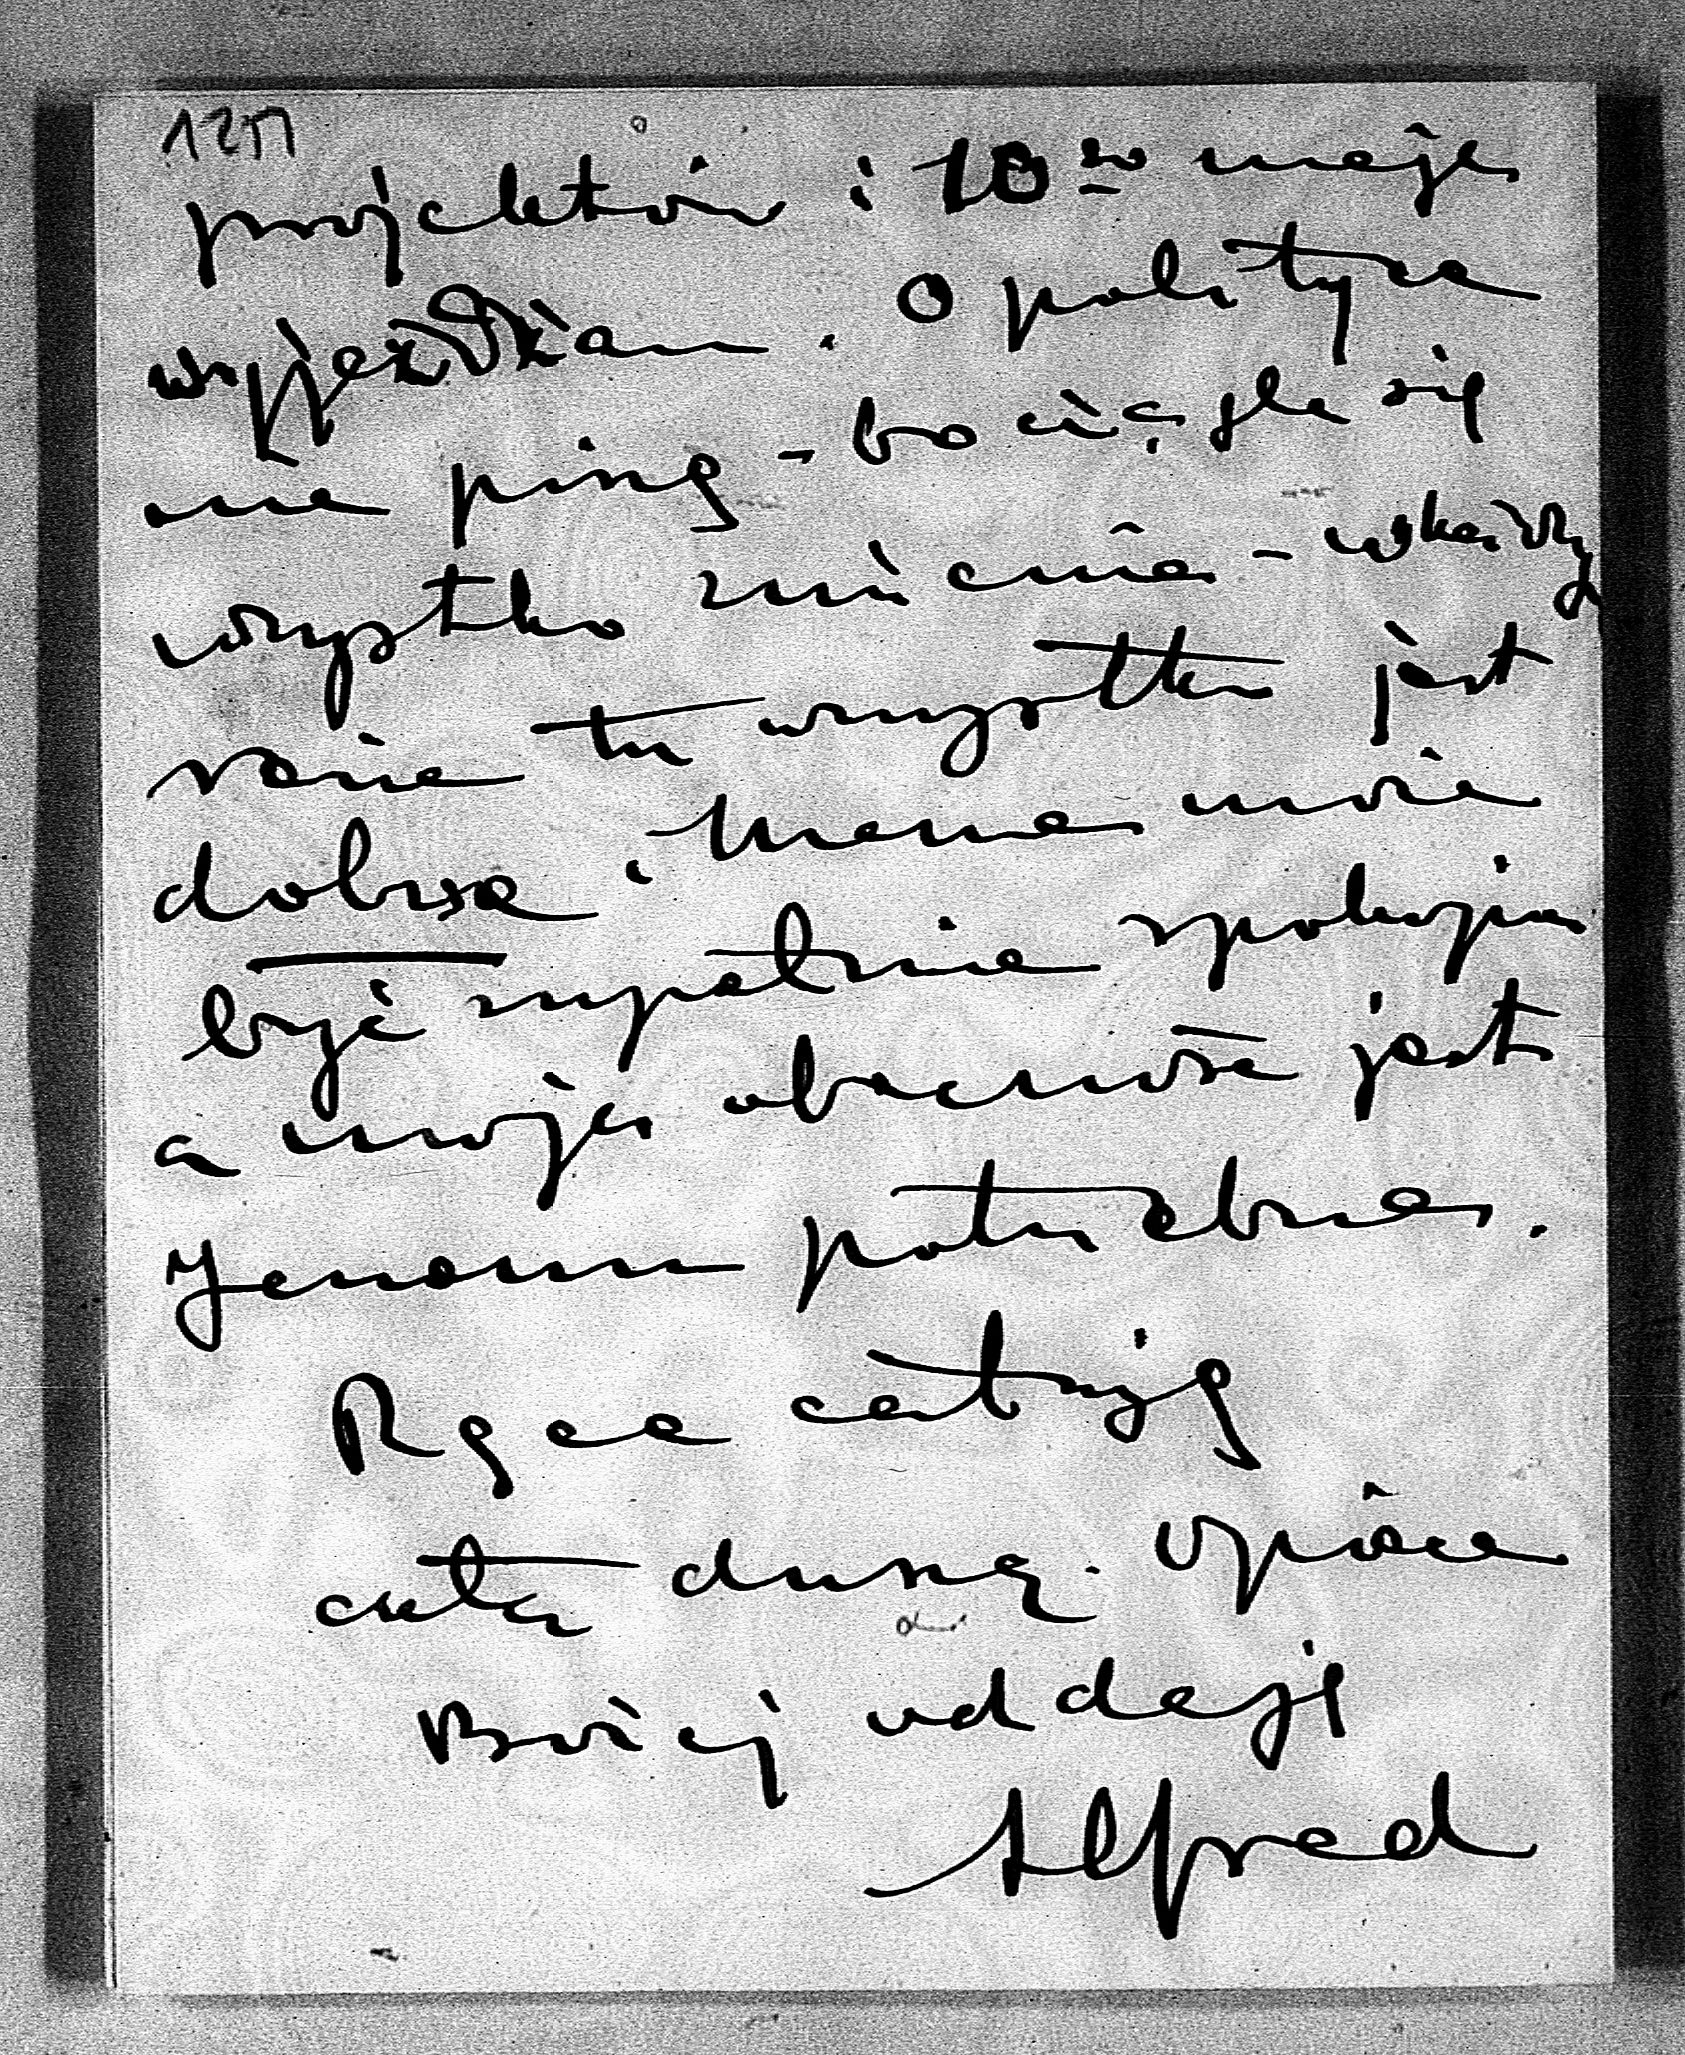 projektów i 10go maja
wyjeżdżam. O polityce
nie piszę - bo ciągle się
wszystko zmienia - w każdym
razie tu wszystko jest
dobrze i Mama może
być zupełnie spokojna
a moja obecność jest
potrzebna.
Ręce całuję
całą duszą. Opiece
Bożej oddaję
Alfred